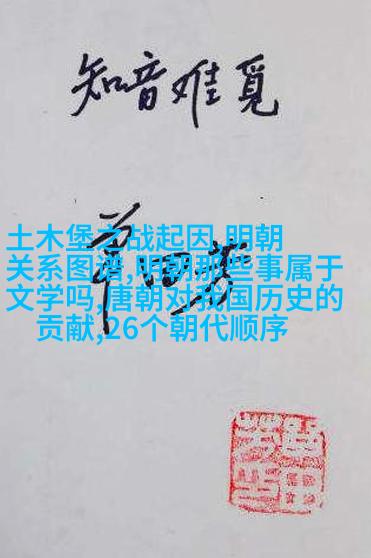 知音难觅
土木堡之战起因,明朝
关系图谱,明朝那些事属于
文学吗,唐朝对我国历史的
贡献,26个朝代顺序